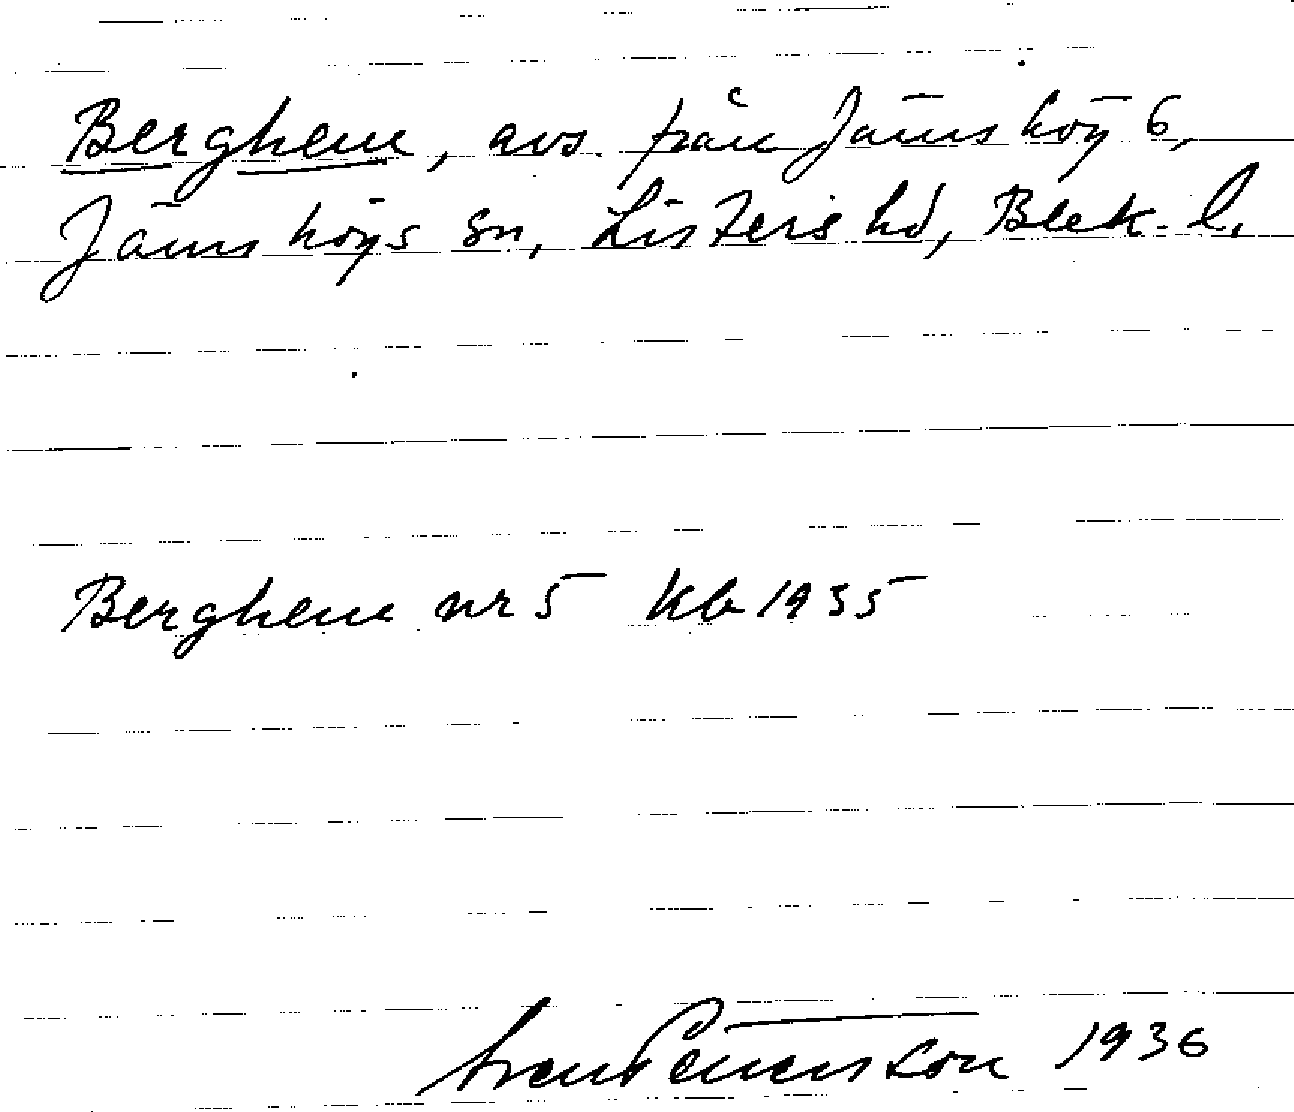 Berghem, avs. från Jämshög 6,
Jämshögs sn, Listers hd, Blek. l.
Berghem nr 5 Kb 1935
1936